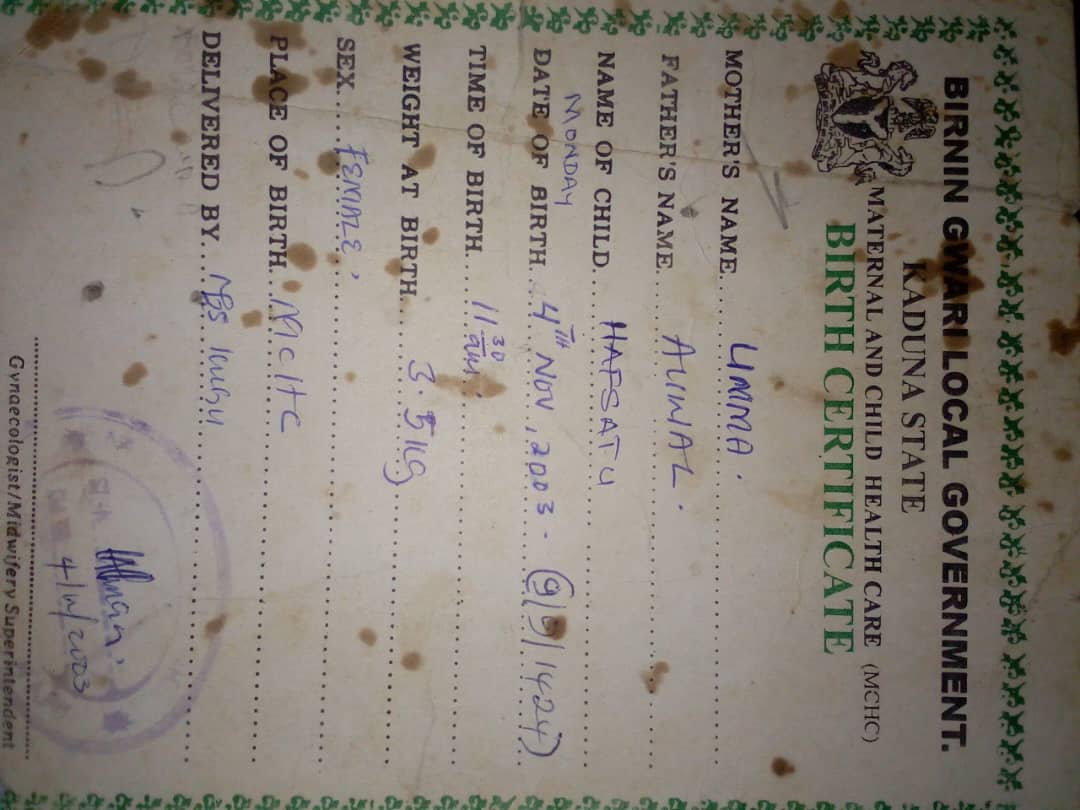 BIRNIN GWARI LOCAL GOVERNMENT.
KADUNA STATE
MATERNAL AND CHILD HEALTH CARE (MCHC)
BIRTH CERTIFICATE
MOTHER'S NAME....UMMA.
FATHER'S NAME....AUWAL.
NAME OF CHILD....HAFSATU
MONDAY
DATE OF BIRTH....4TH NOV, 2003- (9/9/1424)
TIME OF BIRTH....11 30 am.
WEIGHT AT BIRTH....3.5kg
SEX....FEMALE,
PLACE OF BIRTH....MCHC
DELIVERED BY....
4/11/2003
Gynaecologist/Midwifery Superintendent